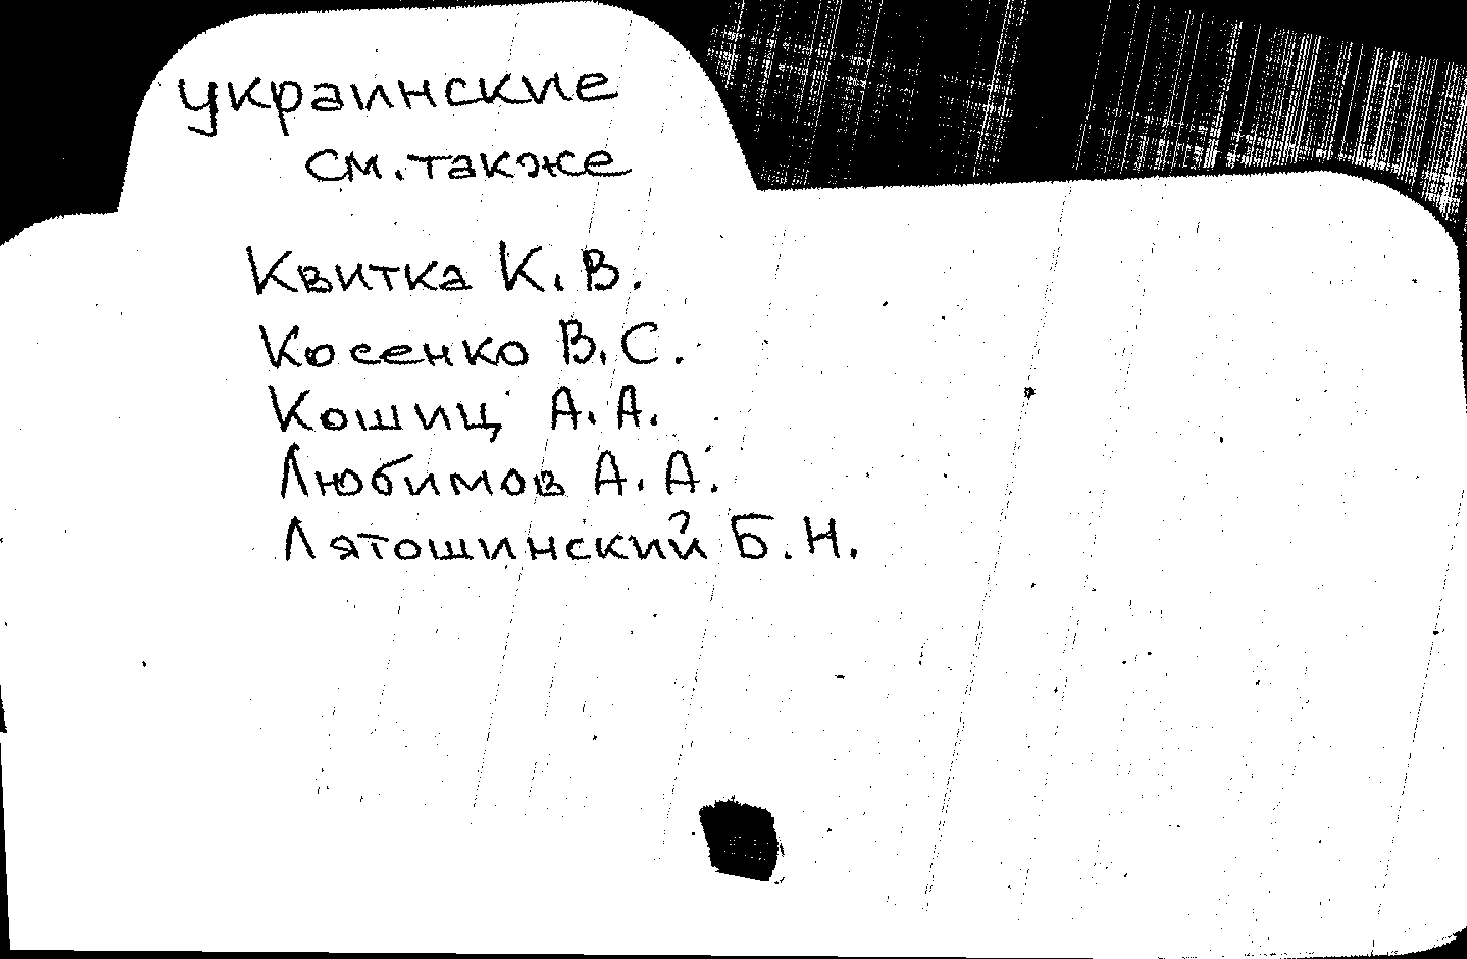 украинские
см. также
Квитка К. В.
Косенко В. С.
Кошиц А. А.
Любимов А. А.
Лятошинский Б. Н.